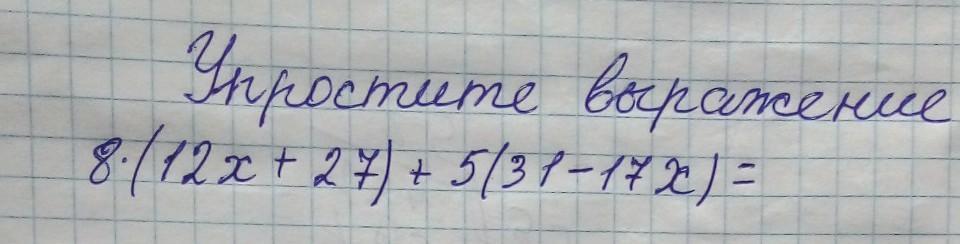 Упростите выражение
8·(12x + 27) + 5(31 - 17x) =